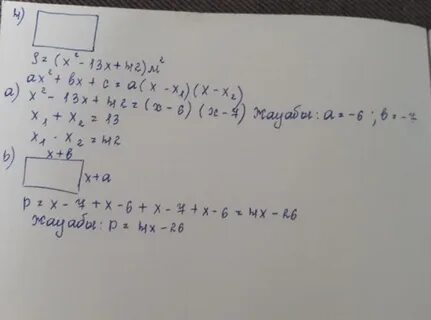 4)
S = (x² - 13x + 42) м²
ax² + bx + c = a(x - x₁)(x - x₂)
a) x² - 13x + 42 = (x - 6)(x - 7) Жауабы: a = -6; b = -7
x₁ + x₂ = 13
x₁ · x₂ = 42
b) x+b
x+a
P = x - 7 + x - 6 + x - 7 + x - 6 = 4x - 26
Жауабы: P = 4x - 26